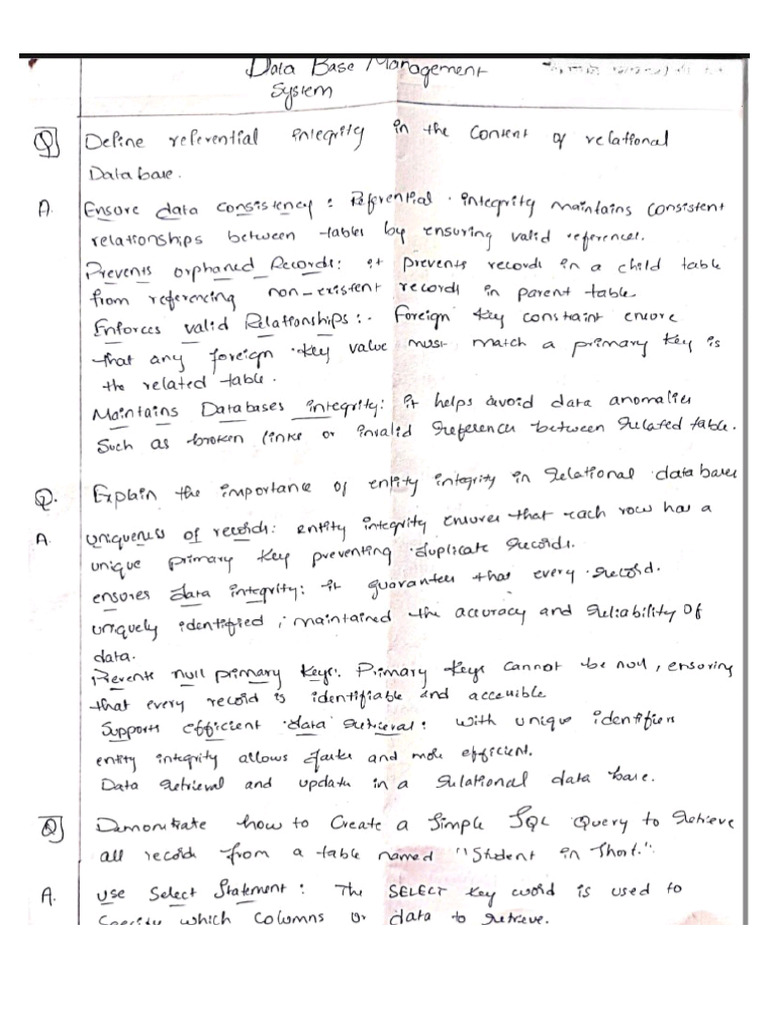 Data Base Management
System
Q] Define referential integrity in the Content of relational
Data base.
A. Ensure data consistency : Referential integrity maintains consistent
relationships between tables by ensuring valid references.
Prevents orphaned Records: it prevents records in a child table
from referencing non-existent records in parent table.
Enforces valid Relationships:. Foreign key constraint ensure
that any foreign key value must match a primary key is
the related table.
Maintains Databases integrity: it helps avoid data anomalies
Such as broken links or invalid references between related table.
Q. Explain the importance of entity integrity in relational data bases
A. Uniqueness of records: entity integrity ensures that each row has a
unique primary key preventing duplicate records.
ensures data integrity: it guarantees that every record.
uniquely identified, maintained the accuracy and reliability of
data.
Prevents null primary keys. Primary keys cannot be null, ensuring
that every record is identifiable and accessible
Supports efficient data retrieval: with unique identifiers
entity integrity allows faster and more efficient.
Data retrieval and update in a relational data base.
Q] Demonstrate how to Create a Simple SQL Query to retrieve
all record from a table named "Student in Short."
A. Use Select Statement : The SELECT key word is used to
Specify which columns or data to retrieve.